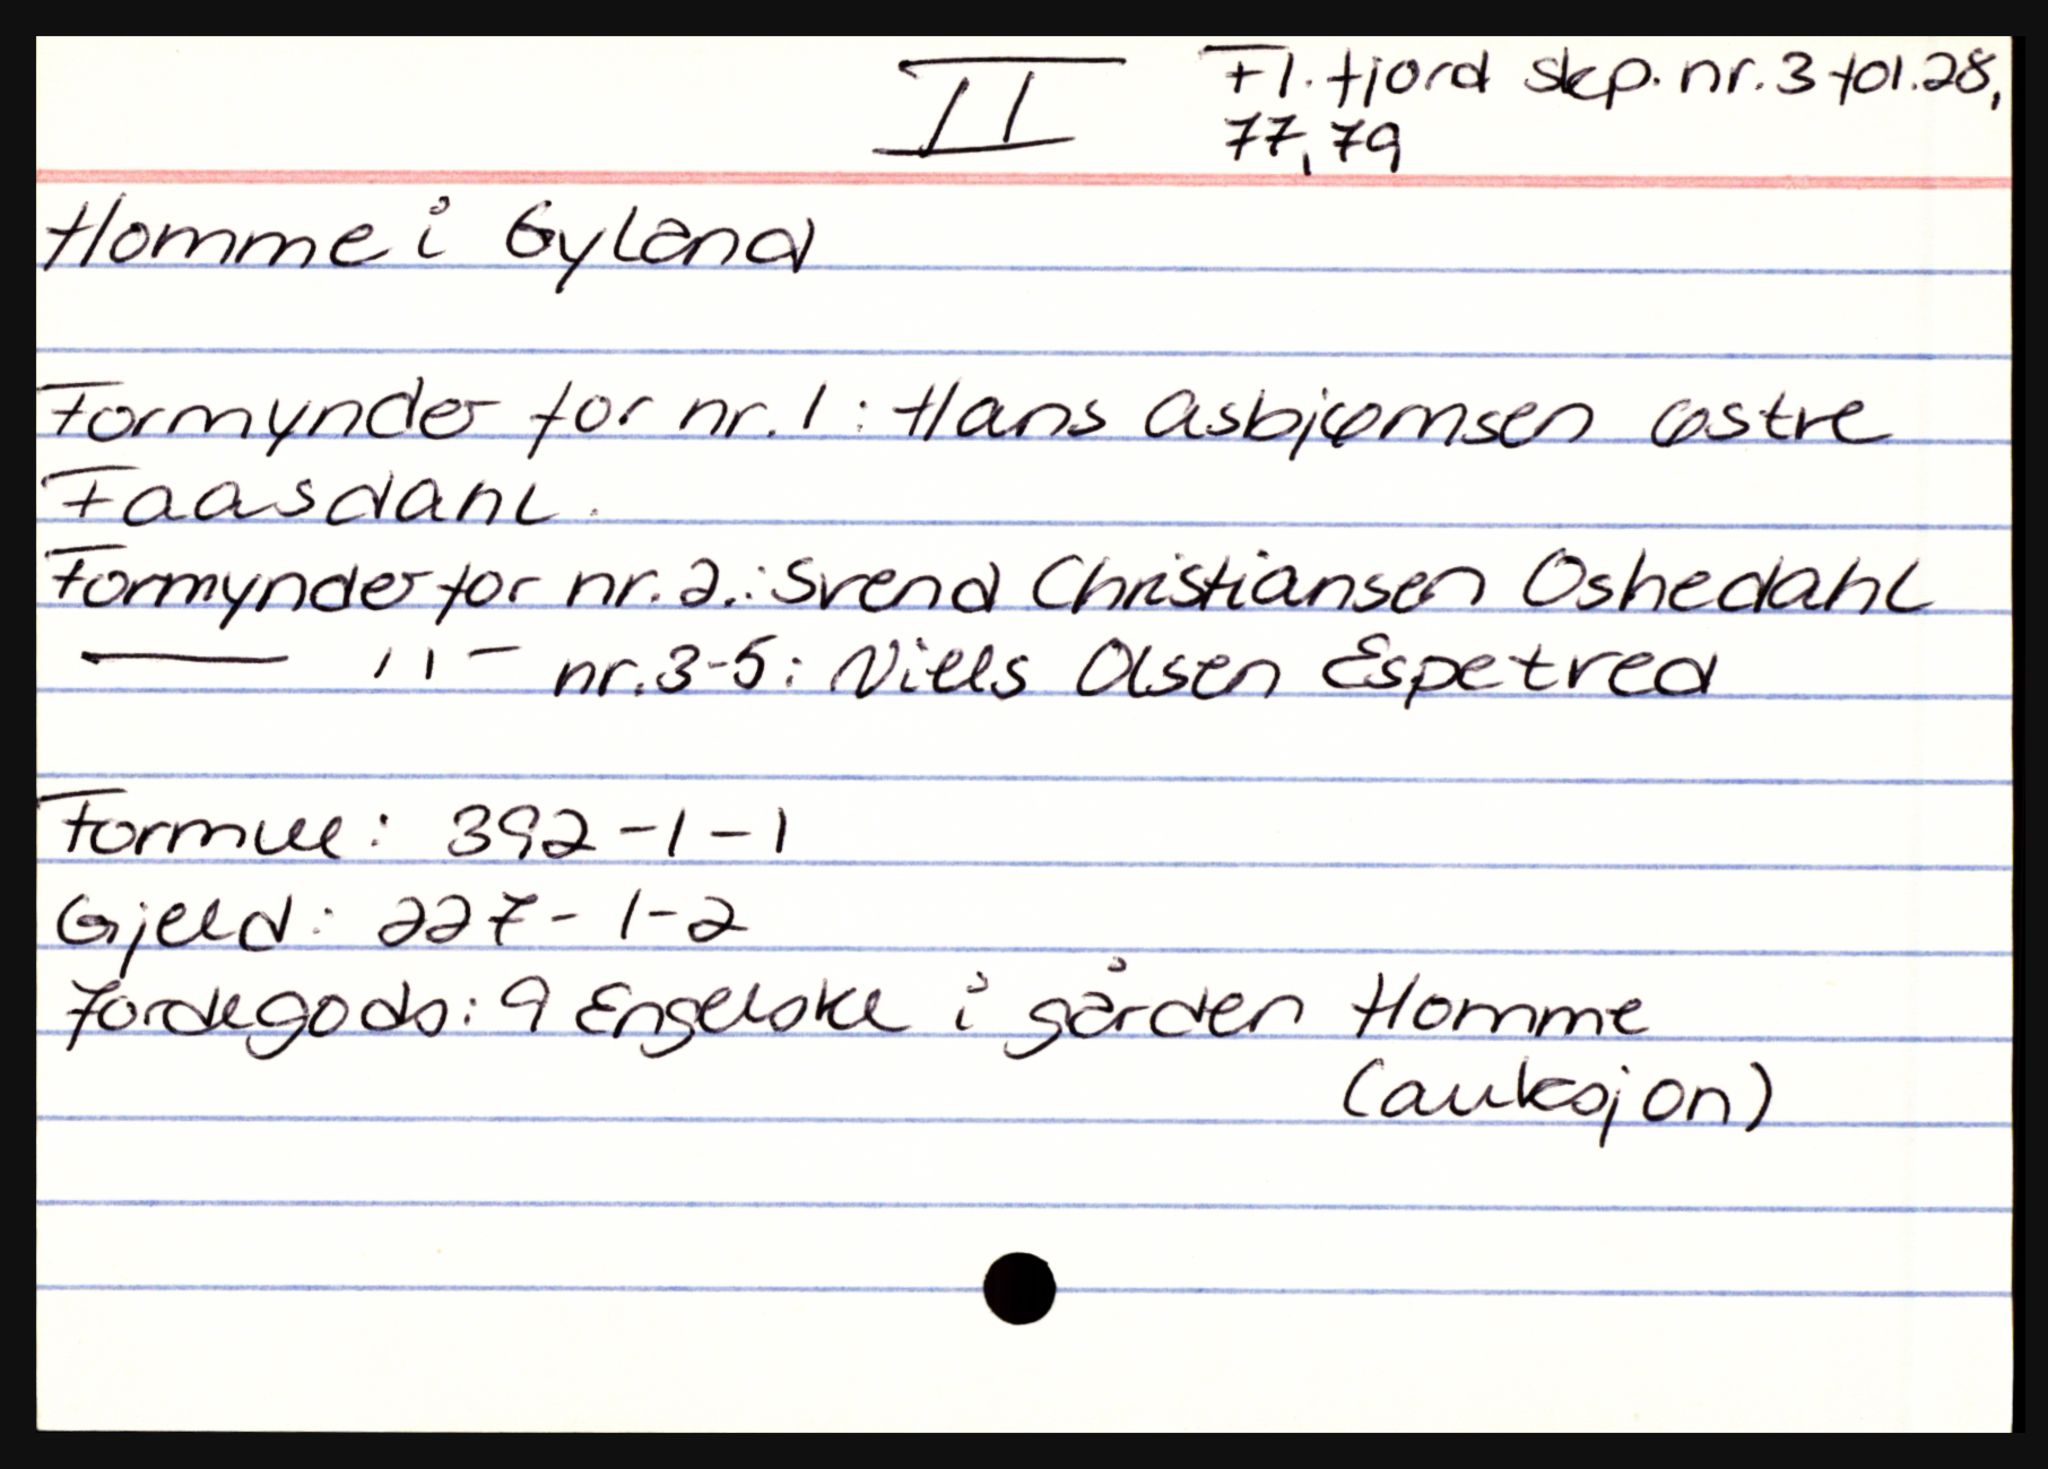 II Fl.fjord skp. nr. 3 fol. 28,
77, 79
Homme i Gyland
Formynder for nr. 1: Hans Asbjørnsen østre
Faasdahl.
Formynder for nr. 2.: Svend Christiansen Oshedahl
— " — nr. 3-5: Niels Olsen Espetred
Formue: 392-1-1
Gjeld: 227-1-2
Jordegods: 9 Engelske i gården Homme
(auksjon)